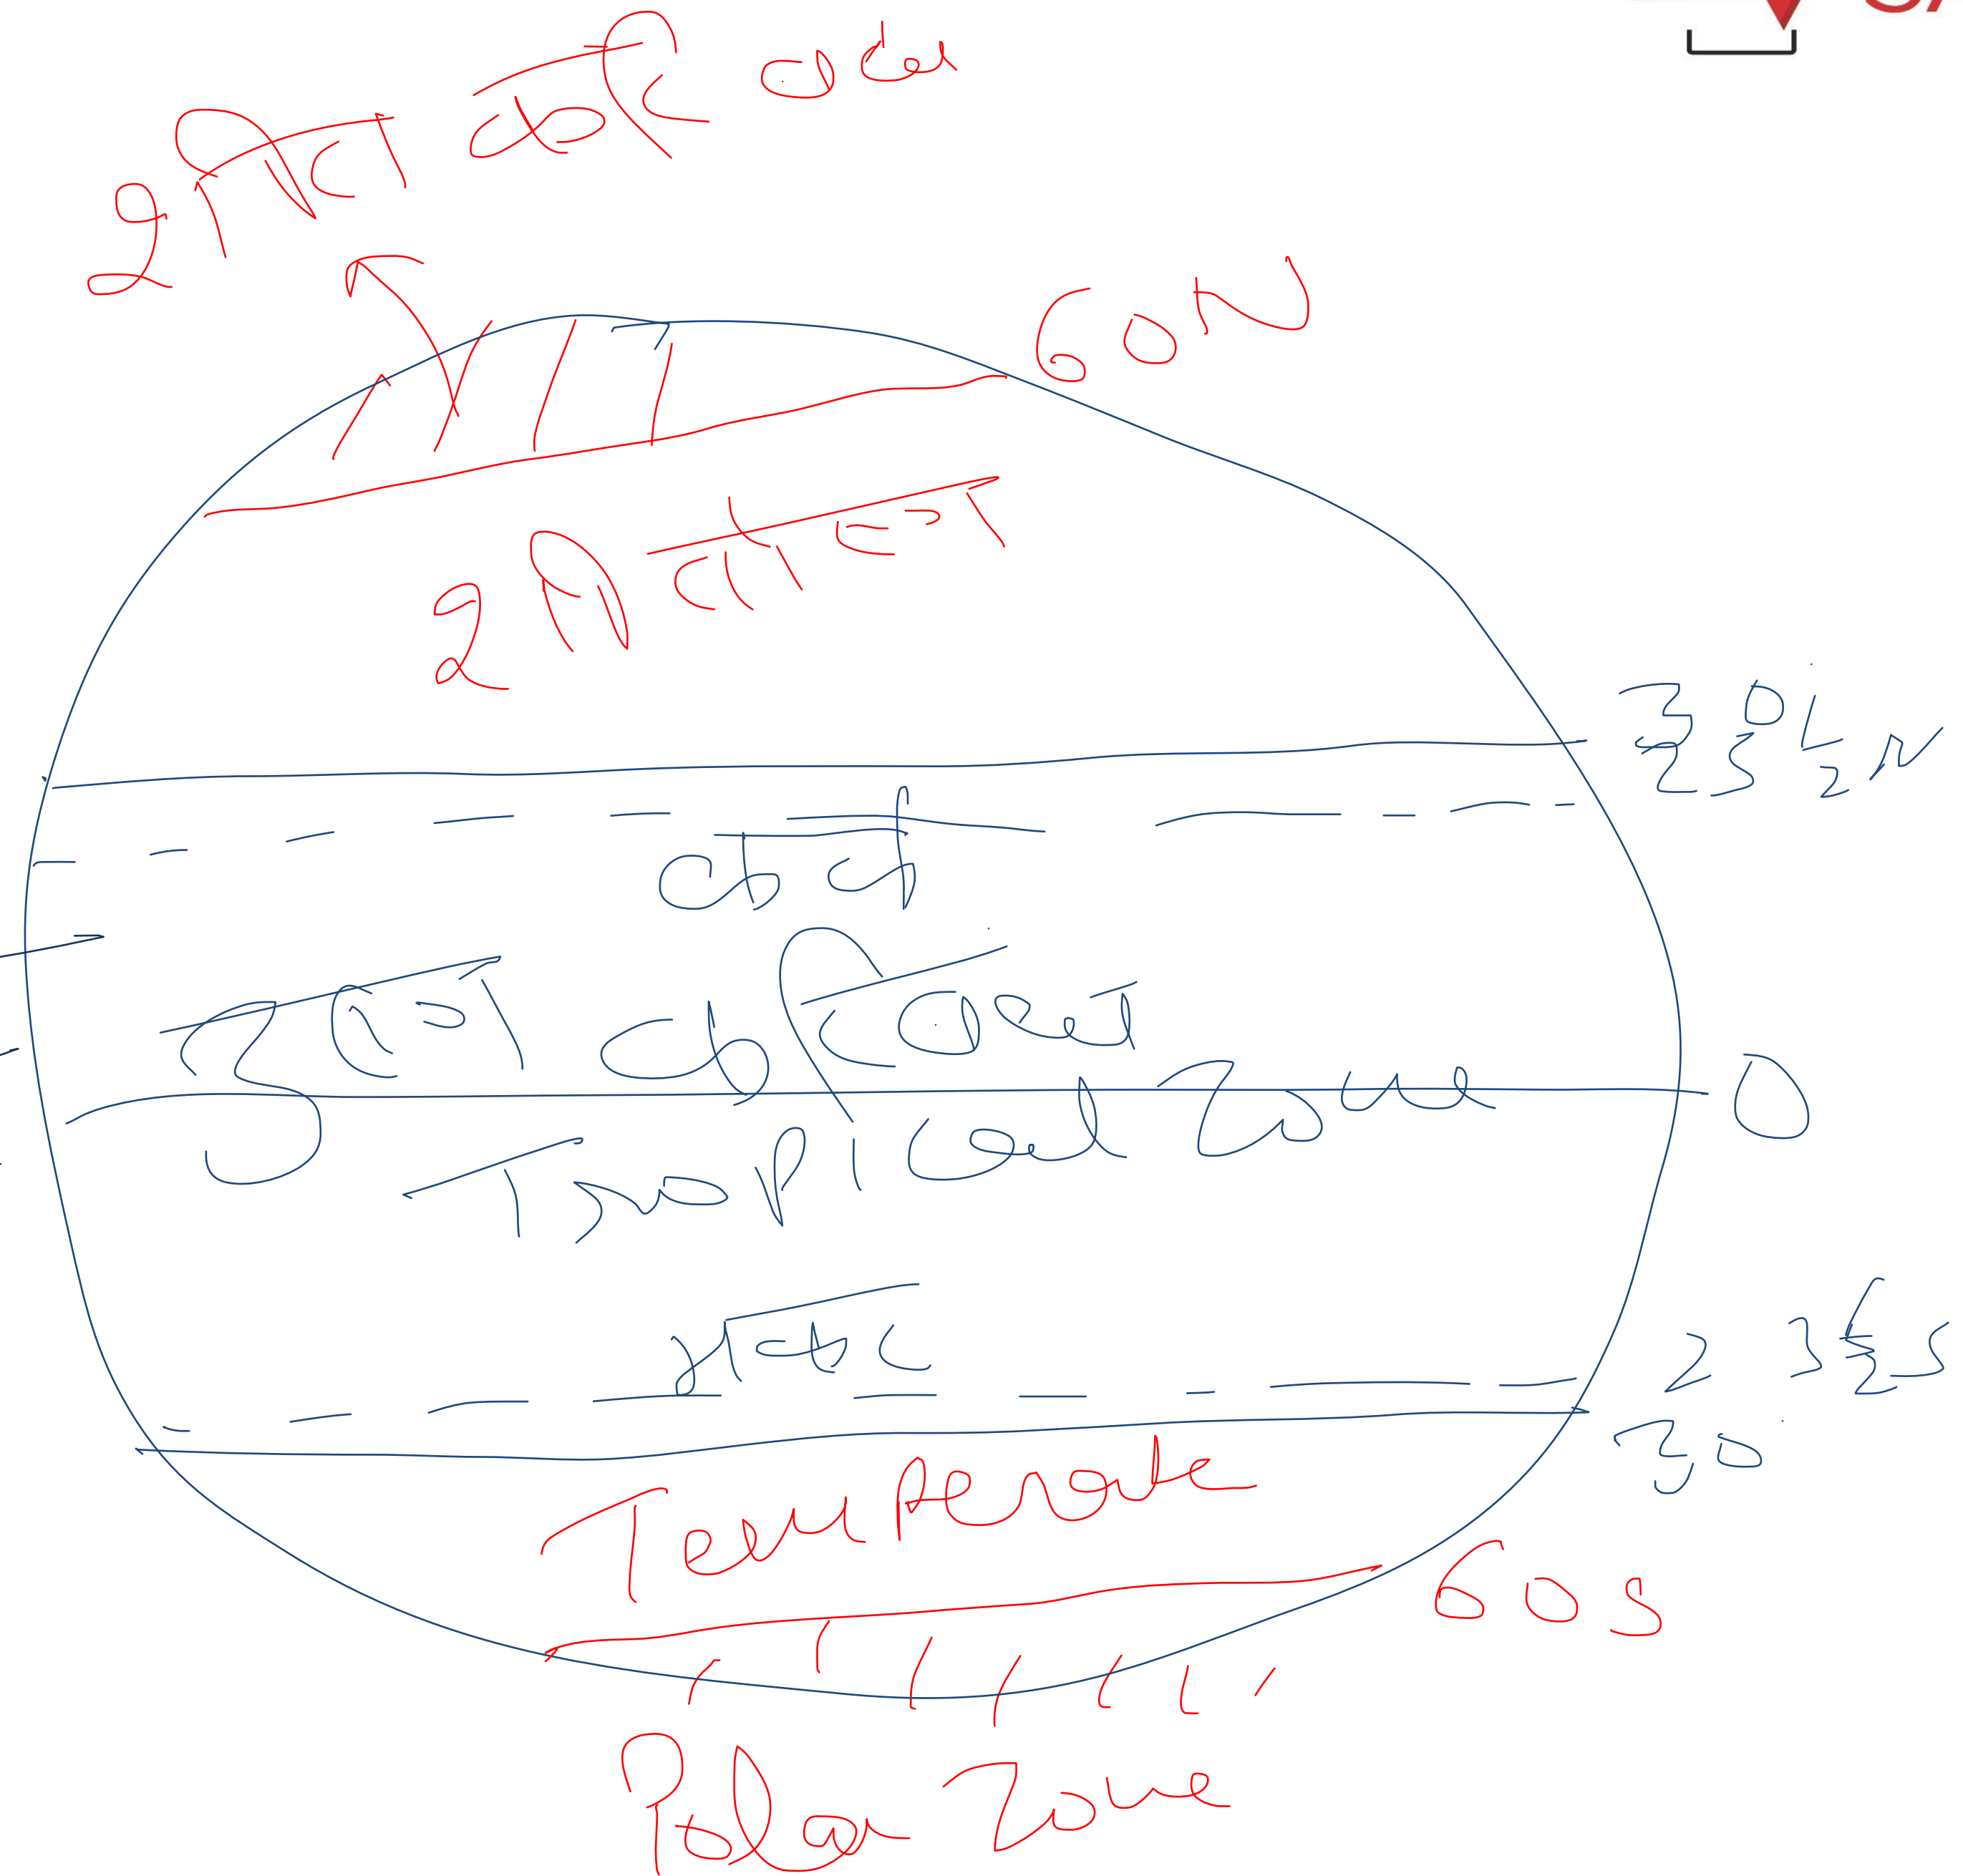 शीत कटि
60N
शीतोष्ण
30
23 1/2 N
कर्क
उष्ण कटि
0
Tropical Zone
मकर
23 1/2 S
30
Temperate
60S
Polar Zone